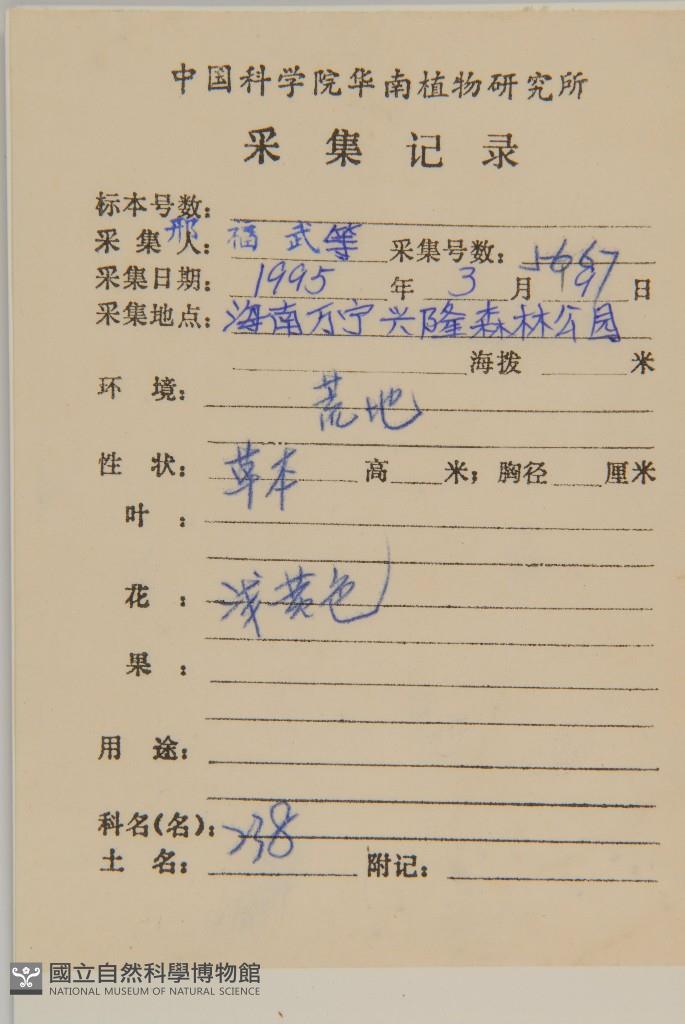 中国科学院华南植物研究所
采集记录
标本号数:
采集人: 邢福武等 采集号数: 5667
采集日期: 1995 年 3 月 19 日
采集地点: 海南万宁兴隆森林公园
海拨 米
环境: 荒地
性状: 草本 高 米; 胸径 厘米
叶:
花: 浅黄色
果:
用途:
科名(名): 238
土名: 附记:
國立自然科學博物館
NATIONAL MUSEUM OF NATURAL SCIENCE